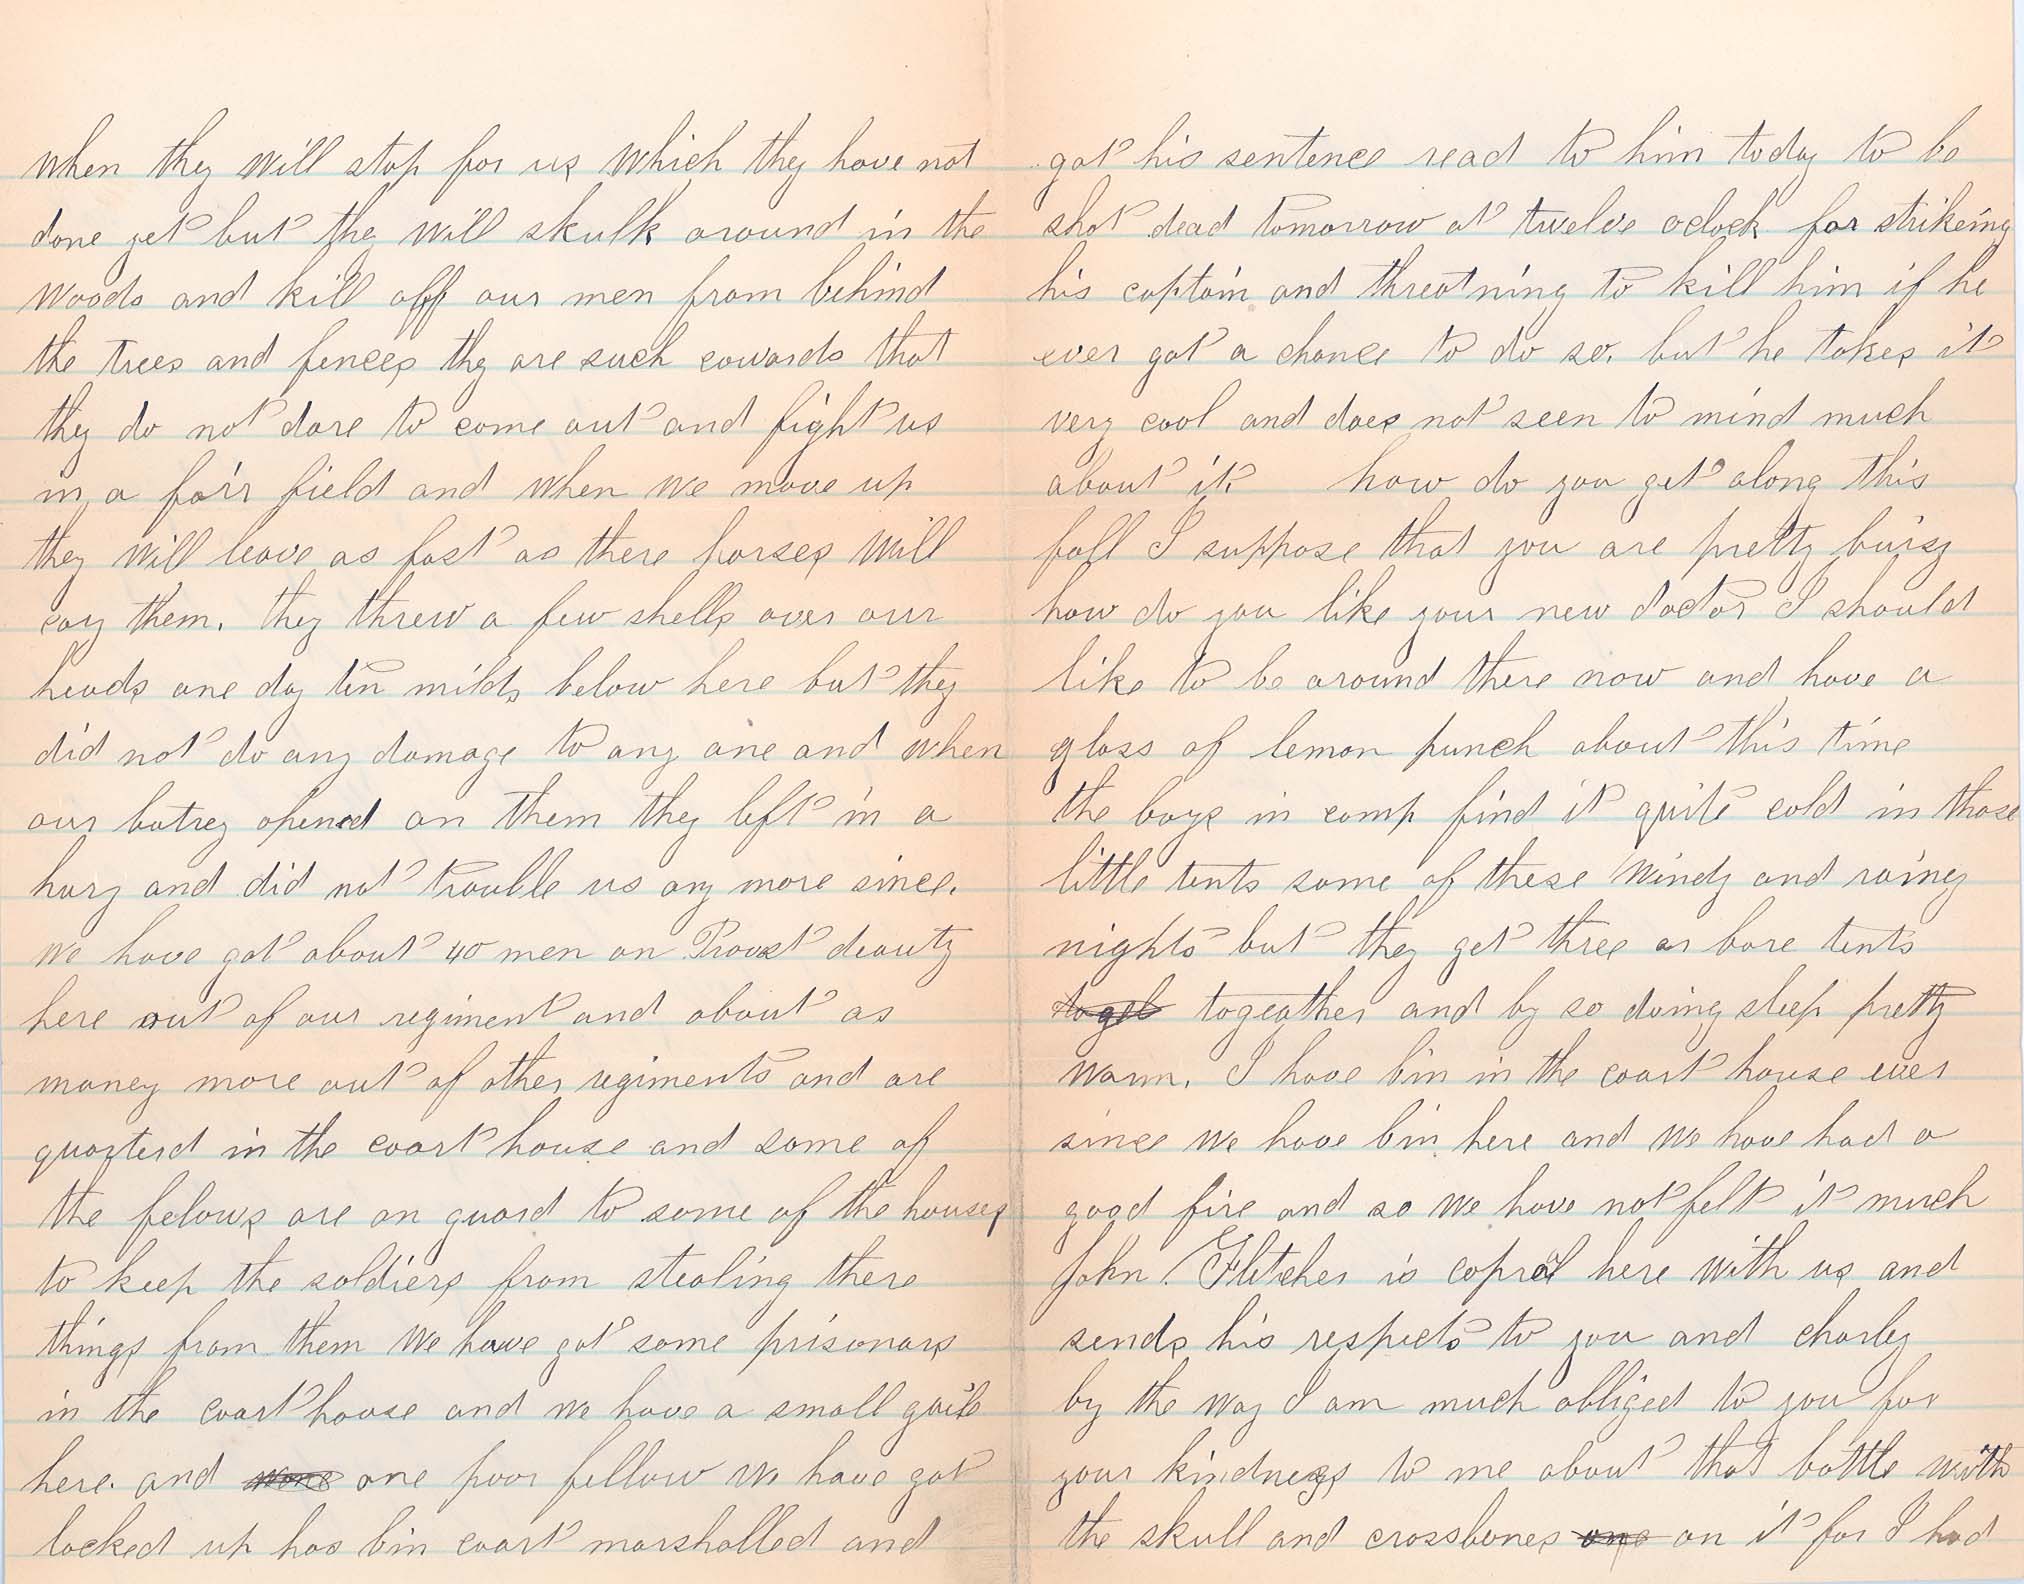 when they will stop for us which they have not
done yet but they will skulk around in the
woods and kill off our men from behind
the trees and fences they are such cowards that
they do not dare to come out and fight us
in a fair field and when we move up
they will leave as fast as there horses will
cary them. they threw a few shells over our
heads one day ten milds below here but they
did not do any damage to any one and when
our batrey opened on them they left in a
hury and did not trouble us any more since.
We have got about 40 men on Provst deauty
here out of our regiment and about as
money more out of other regiments and are
quarterd in the coart house and some of
the felows are on guard to some of the houses
to keep the soldiers from stealing there
things from them We have got some prisonars
in the coart house and we have a small guile
here. and one poor fellow we have got
locked up has bin coart marshalled and
got his sentence read to him today to be
shot dead tomorrow at twelve oclock for strikeing
his captain and threatning to kill him if he
ever got a chance to do so. but he takes it
very cool and does not seen to mind much
about it. how do you get along this
fall I suppose that you are pretty buisy
how do you like your new doctor I should
like to be around there now and have a
glass of lemon punch about this time
the boys in camp find it quite cold in those
little tents some of these windy and rainey
nights but they get three or bore tents
togel togeather and by so doing sleep pretty
warm. I have bin in the coart house ever
since we have bin here and we have had a
good fire and so we have not felt it much
John. Fletcher is copral here with us and
sends his respects to you and charley
by the way I am much obliged to you for
your kindness to me about that bottle with
the skull and crossbones one on it for I had